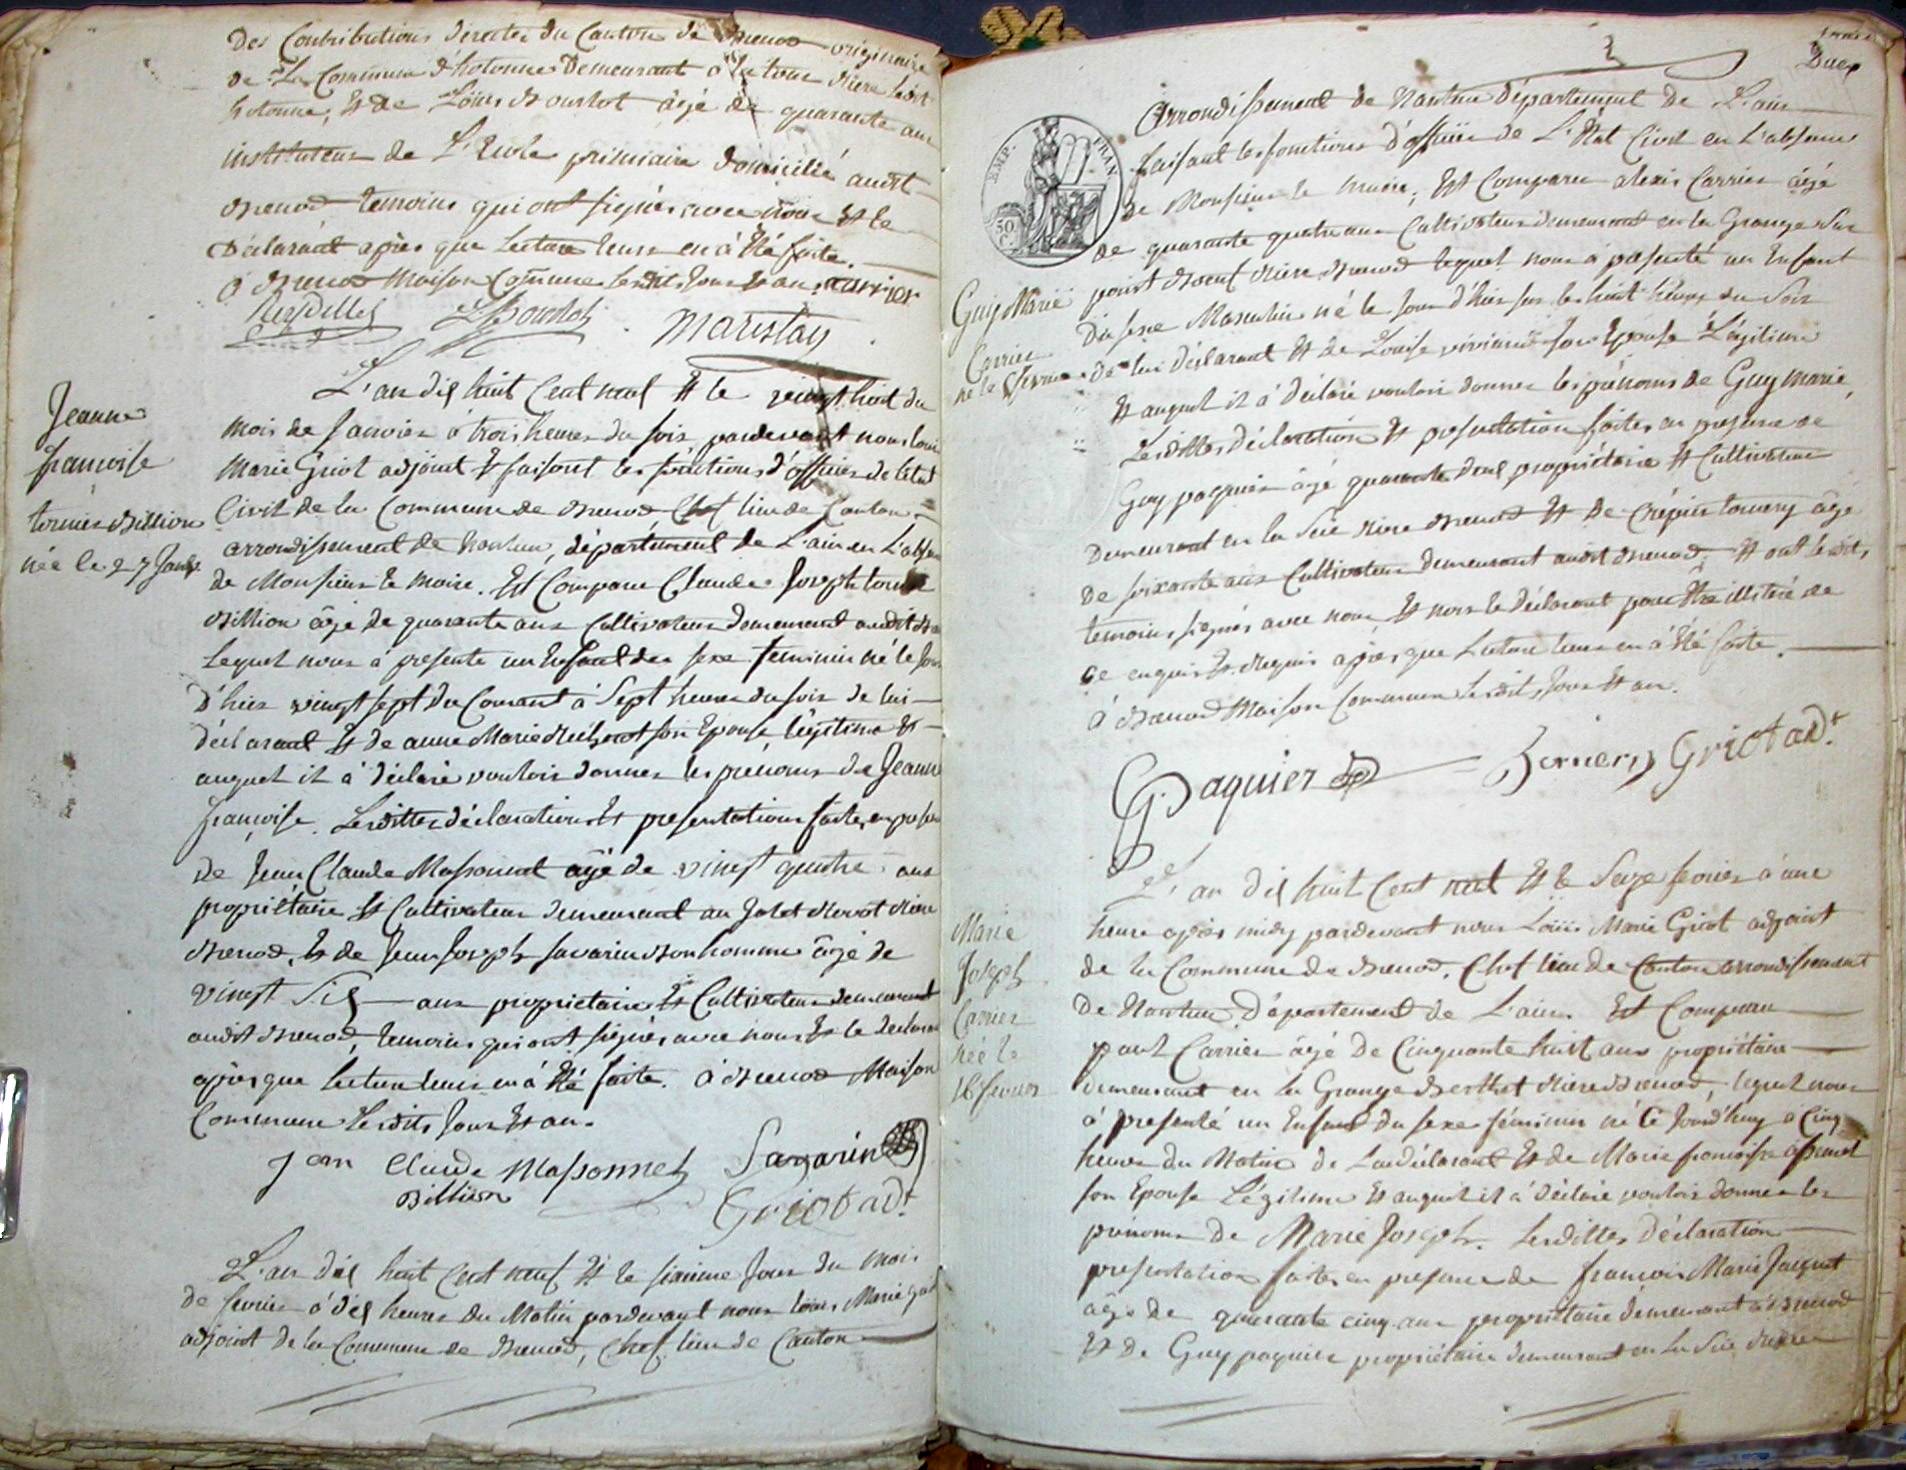 Des Contributions directes du Canton de Brenod originaire
de La Commune d'hotonne Demeurant à la tour riere ledit
hotonne, Et de Loüis Bourlot âgé de quarante ans
instituteur de L'Ecole primaire domicilié audit
Brenod temoins qui ont signés avec nous Et le
Déclarant après que lecture leur en à Eté faite.
à Brenod Maison Commune lesdits Jour Et an.
Maristay
Jeanne
francoise
tornier Billion
née le 27 Janv.
L'an dix huit Cent neuf Et le vingt huit du
mois de Janvier à trois heures du soir pardevant nous Louis
Marie Griot adjoint Et faisant les fonctions d'officier de l'état
Civil de la Commune de Brenod Chef lieu de Canton
arrondissement de Nantua, département de L'ain en L'absence
de Monsieur le maire. Est Comparu Claude Joseph tornier
Billion âgé de quarante ans Cultivateur demeurant audit
Lequel nous à presenté un Enfant du sexe feminin né le Jour
D'hier vingt sept du Courant à Sept heures du soir de lui
déclarant Et de anne Marie son Epouse légitime Et
auquel il à déclaré vouloir donner les prenoms de Jeanne
françoise. Lesdittes déclarations Et presentations faites en presence
De Jean Claude Massonnet âgé de vingt quatre ans
propriétaire Et Cultivateur demeurant au riere
Brenod, Et de Jean Joseph Savarin Bonhomme âgé de
vingt Six ans propriétaire Et Cultivateur demeurant
audit Brenod, temoins qui ont signés avec nous Et le declarant
après que lecture leur en à Eté faite. à Brenod Maison
Commune lesdits Jour Et an.
Jean Claude Massonnet Savarin
Billion Griot adt
L'an dix huit Cent neuf Et le sixieme Jour du mois
de fevrier à dix heures du Matin pardevant nous Loüis Marie
adjoint de la Commune de Brenod, Chef lieu de Canton
2
Deux
EMP. FRAN.
50
C.
Arrondissement de Nantua département de L'ain
faisant les fonctions d'officier de L'Etat Civil en L'absence
de Monsieur le maire, Est Comparu alexis Carrier âgé
de quarante quatre ans Cultivateur demeurant en la Grange Sur
riere Brenod lequel nous à présenté un Enfant
Du sexe Masculin né le Jour d'hier sur les huit heures du Soir
de lui déclarant Et de Louise son Epouse Légitime
Et auquel il à déclaré vouloir donner les prénoms de Guy Marie,
Guy Marie
Carrier
né le fevrier
Lesdittes déclaration Et presentation faites en presence de
Guy paquier âgé quarante deux propriétaire Et Cultivateur
Demeurant en la Scie riere Brenod Et de Crépin âgé
De soixante ans Cultivateur demeurant audit Brenod, Et ont lesdits
temoins signés avec nous Et non le déclarant pour Etre illitéré de
ce enquis Et Requis après que Lecture leur en à Eté faite.
à Brenod Maison Commune lesdits Jour Et an.
G. Paquier Griot adt
Marie
Joseph
Carrier
née le
16 fevrier
L'an dix huit Cent neuf Et le Seize fevrier à une
heure après midy pardevant nous Loüis Marie Griot adjoint
de la Commune de Brenod, Chef lieu de Canton arrondissement
De Nantua, département de L'ain. Est Comparu
paul Carrier âgé de Cinquante huit ans propriétaire
demeurant en la Grange Berthet riere Brenod, lequel nous
à presenté un Enfant du sexe féminin né Ce Jourd'huy à Cinq
heures du Matin de Lui déclarant Et de Marie francoise
son Epouse Légitime Et auquel il à déclaré vouloir donner les
prénoms de Marie Joseph. Lesdittes Déclaration
presentation faites en presence de francois Marie Jacquet
âgé de quarante cinq ans propriétaire demeurant à Brenod
Et de Guy paquier propriétaire demeurant en la Scie riere